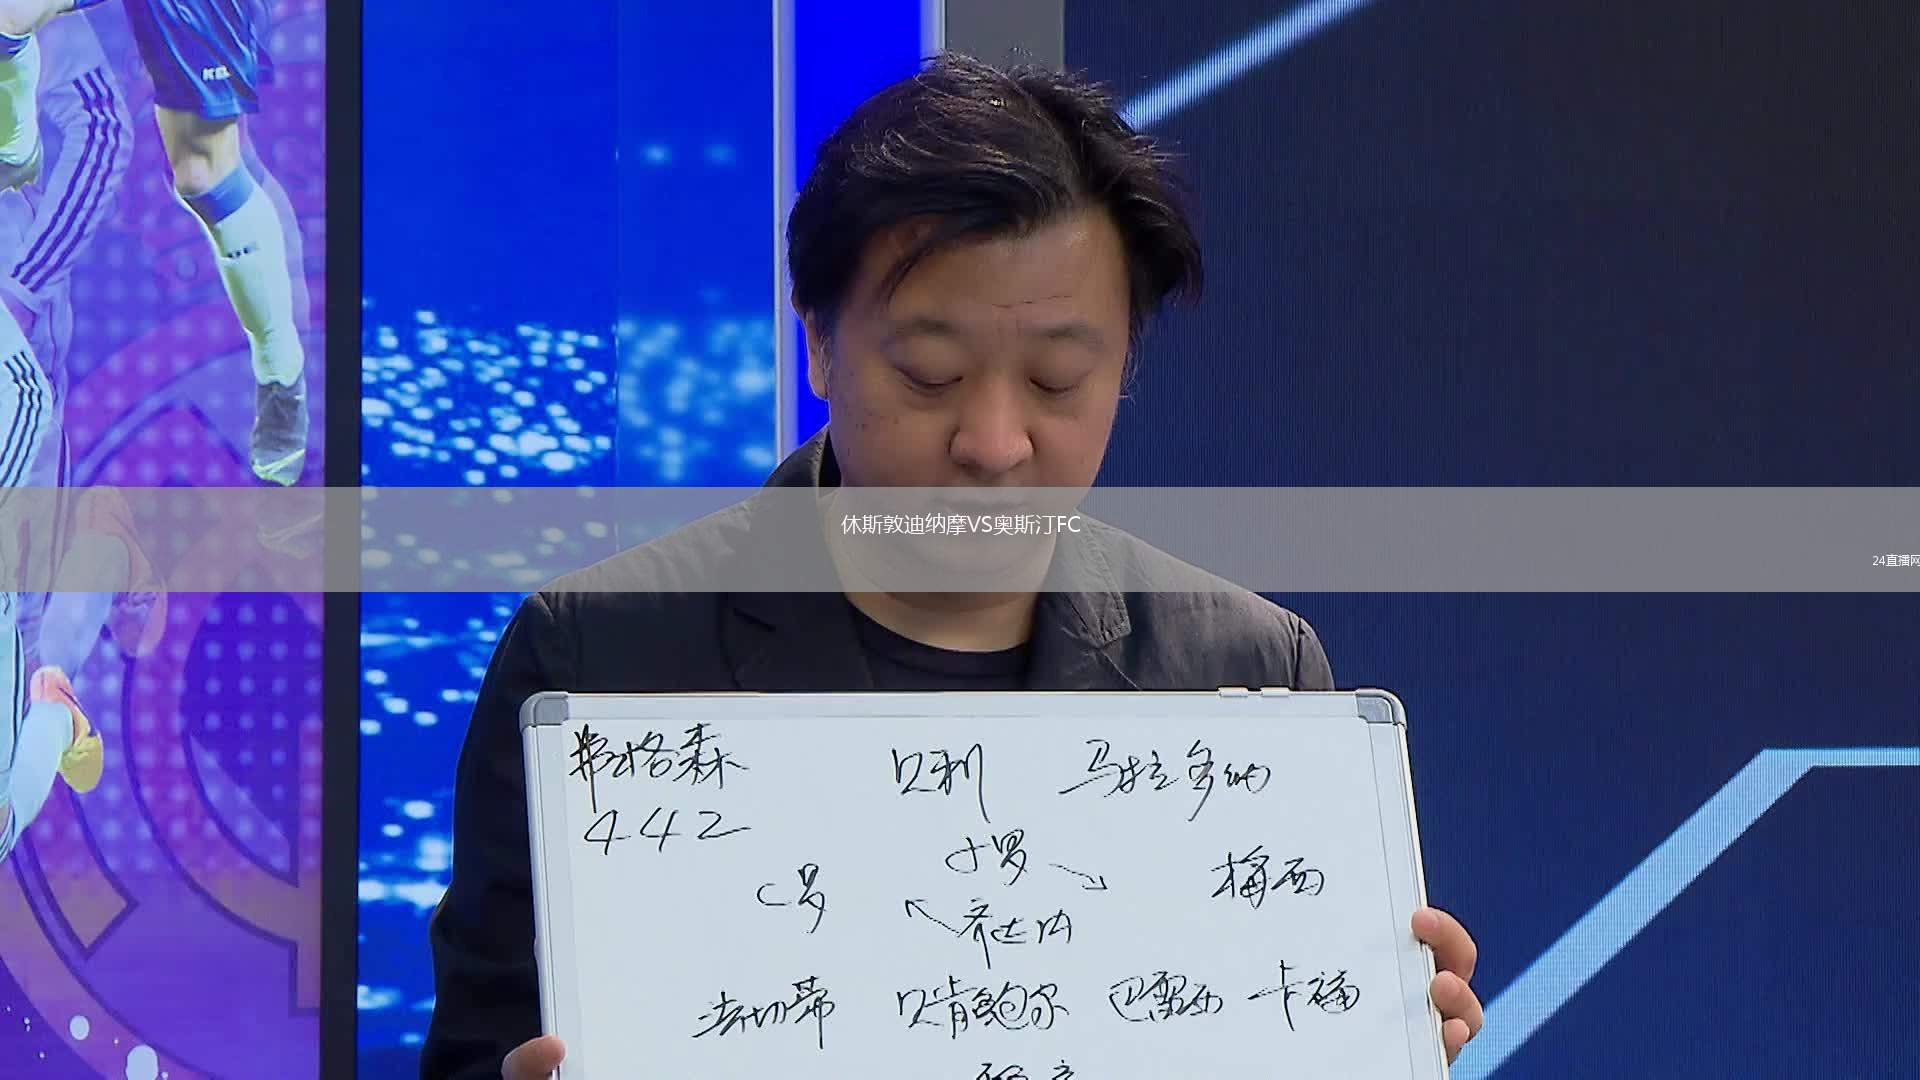 休斯敦迪纳摩VS奥斯汀FC
24直播网
弗格森 贝利 马拉多纳
442
小罗
C罗 梅西
齐达内
法切蒂 贝肯鲍尔 巴雷西 卡福